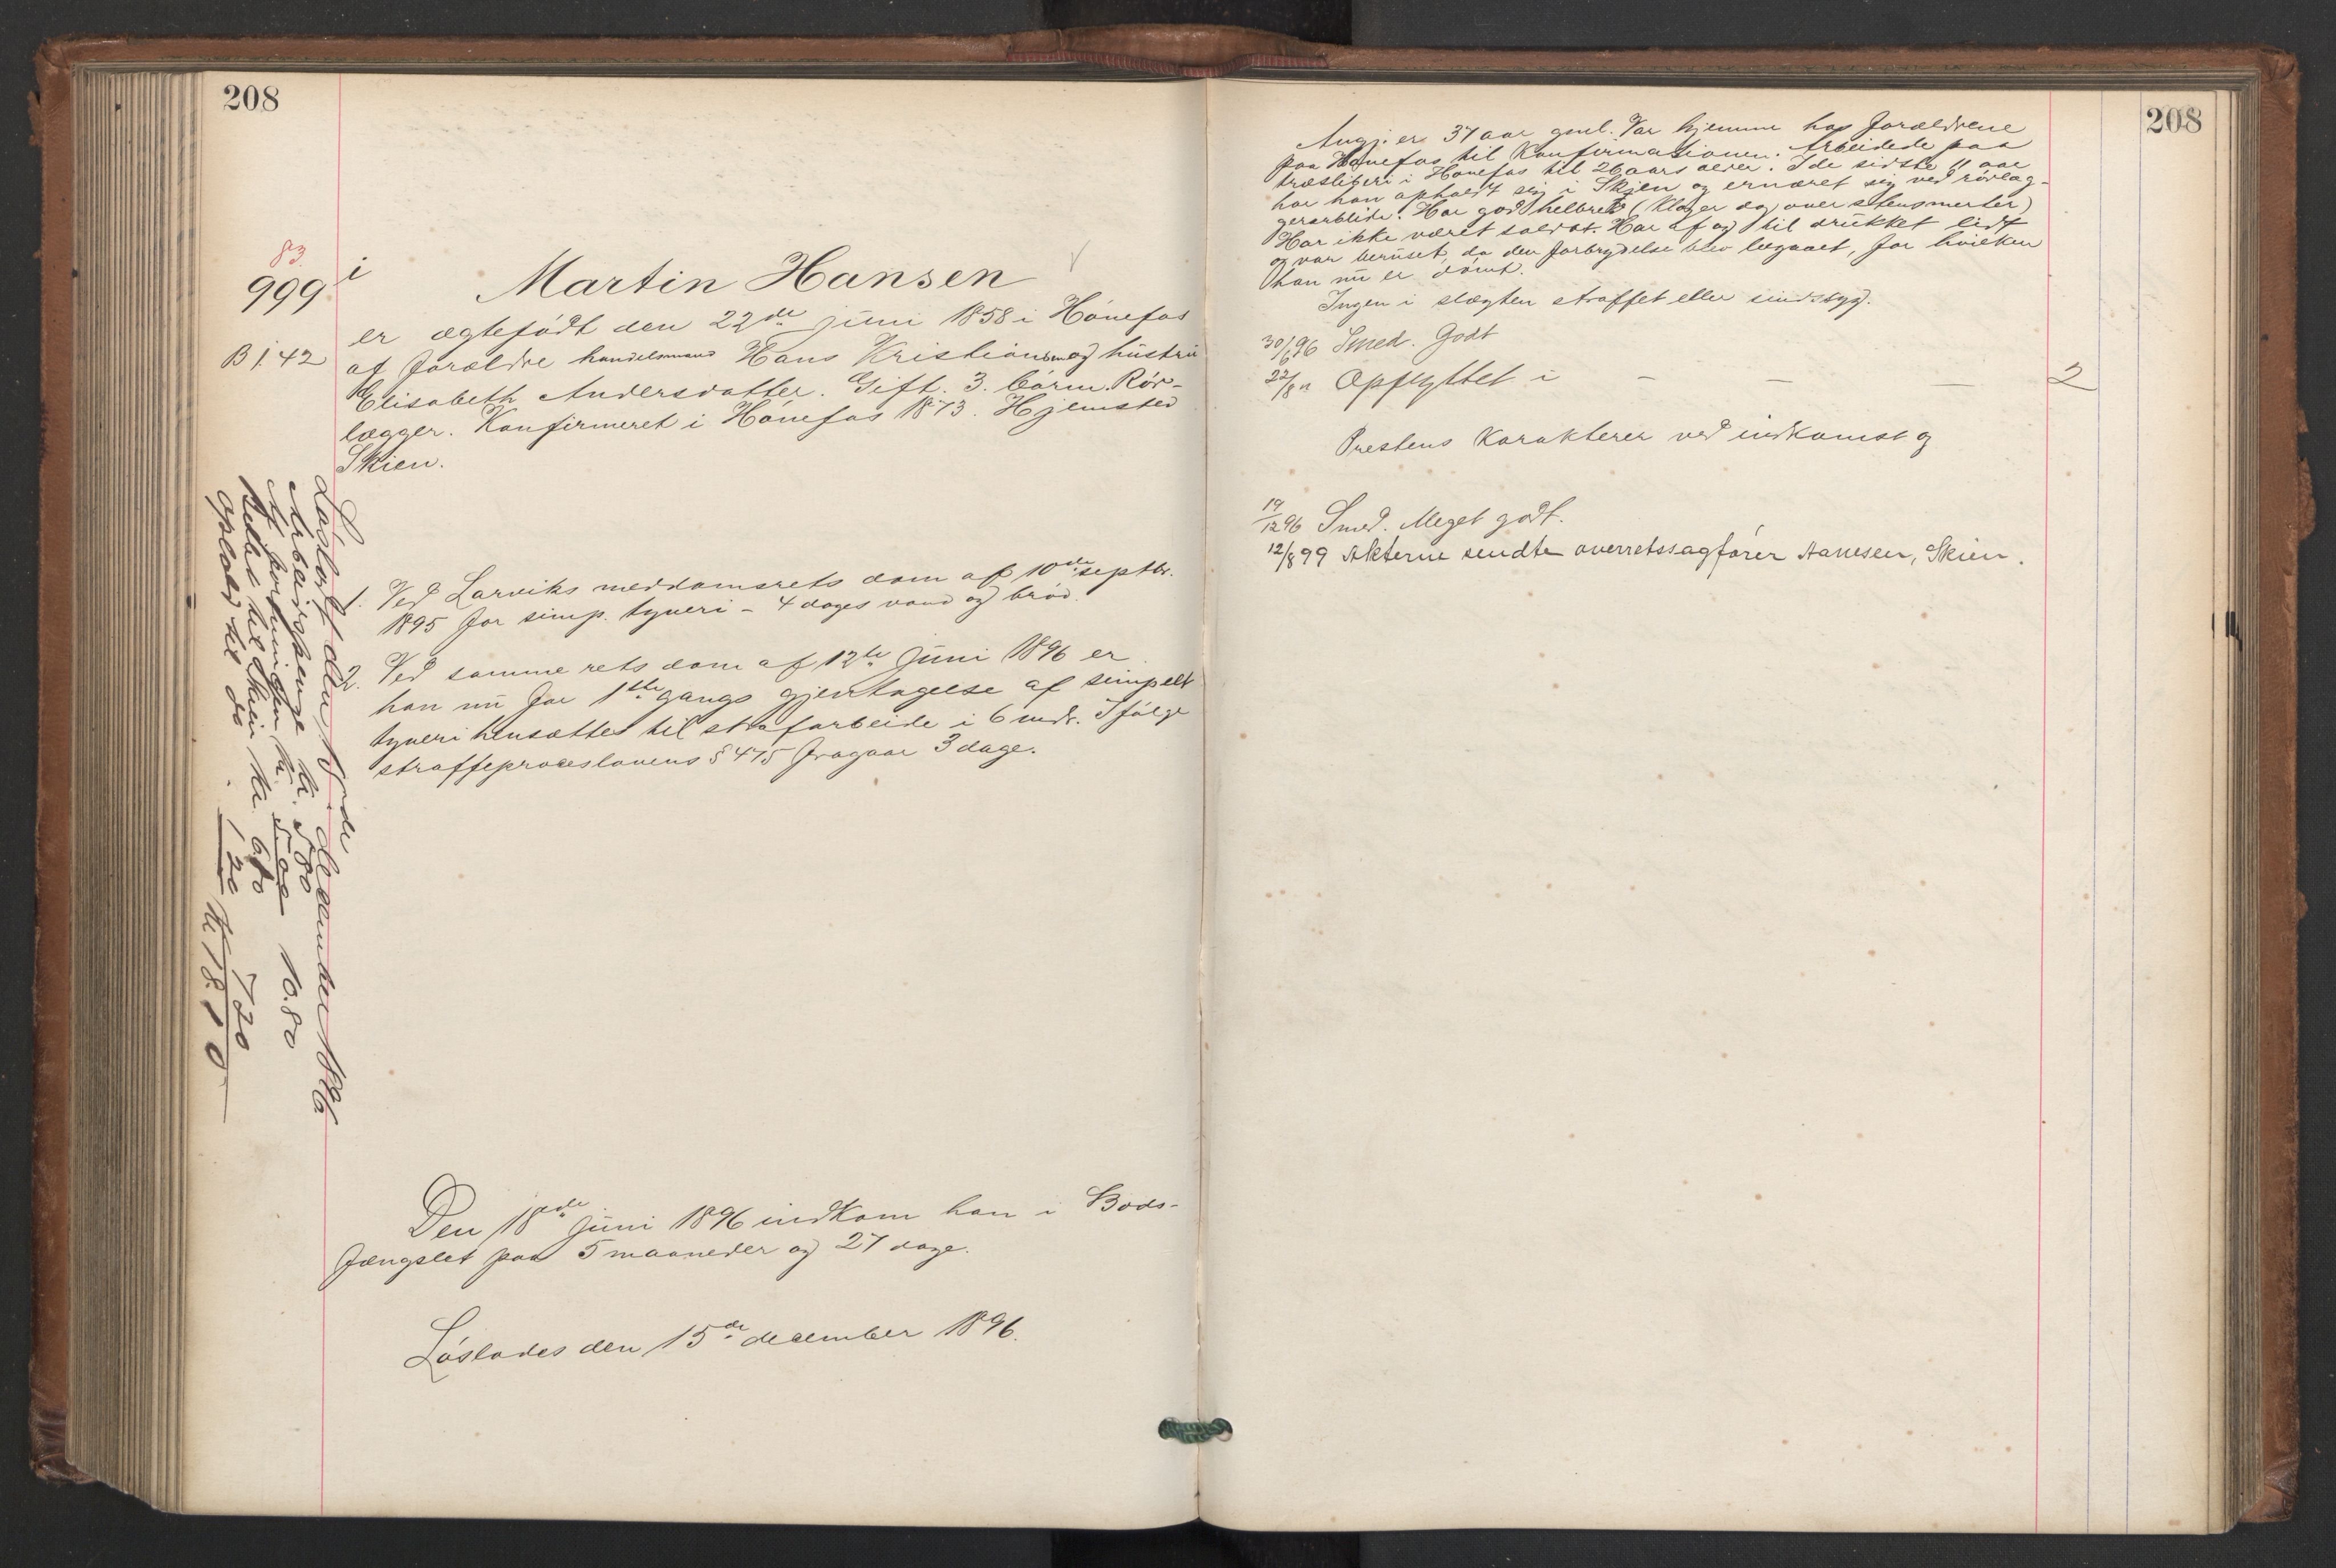 208
83
999 i
Martin Hansen
er ægtefödt den 22de juni 1858 i Hönefos
B 1.42
af forældre handelsmand Hans Kristiansen og hustru
Elisabeth Andersdatter. Gift. 3. börn. Rör-
lægger. Konfirmeret i Hönefos 1873. Hjemsted
Skien.
1. Ved Larviks meddomsrets dom af 10de septbr.
1895 for simp. tyveri - 4 dages vand og bröd.
2. Ved samme rets dom af 12te juni 1896 er
han nu for 1ste gangs gjentagelse af simpelt
tyveri hensættes til strafarbeide i 6 mdr. Ifölge
straffeproceslovens § 475 fragaar 3 dage.
Löslodt den 15de december 1896
Arbeidspenge kr. 5.80
Af foreningen kr. 5.00 10.80
Billet til Skien kr. 6.10
Ophold til do. 1.20 7.20
kr 18.10
Den 18de juni 1896 indkom han i Bods-
fængslet paa 5 maaneder og 27 dage.
Löslodes den 15de december 1896.
208
Angj. er 37 aar gml. Var hjemme hos forældrene
paa Hönefos til konfirmationen. Arbeidede paa
træsliberi i Hönefos til 26 aars alder. I de sidste 11 aar
har han opholdt sig i Skien og ernæret sig ved rörlæg-
gerarbeide. Har god helbred (klager dog over stensmerter)
Har ikke været soldat. Har af og til drukket lidt
og var beruset, da den forbrydelse blev begaaet, for hvilken
han nu er dömt.
Ingen i slægten straffet eller sindssyg.
30/6 96 Smed. Godt
22/8 " Opflyttet i - - - 2
Prestens karakterer ved indkomst og
19/12 96 Smed. Meget godt.
12/8 99 Akterne sendte overretssagförer Aanesen, Skien.